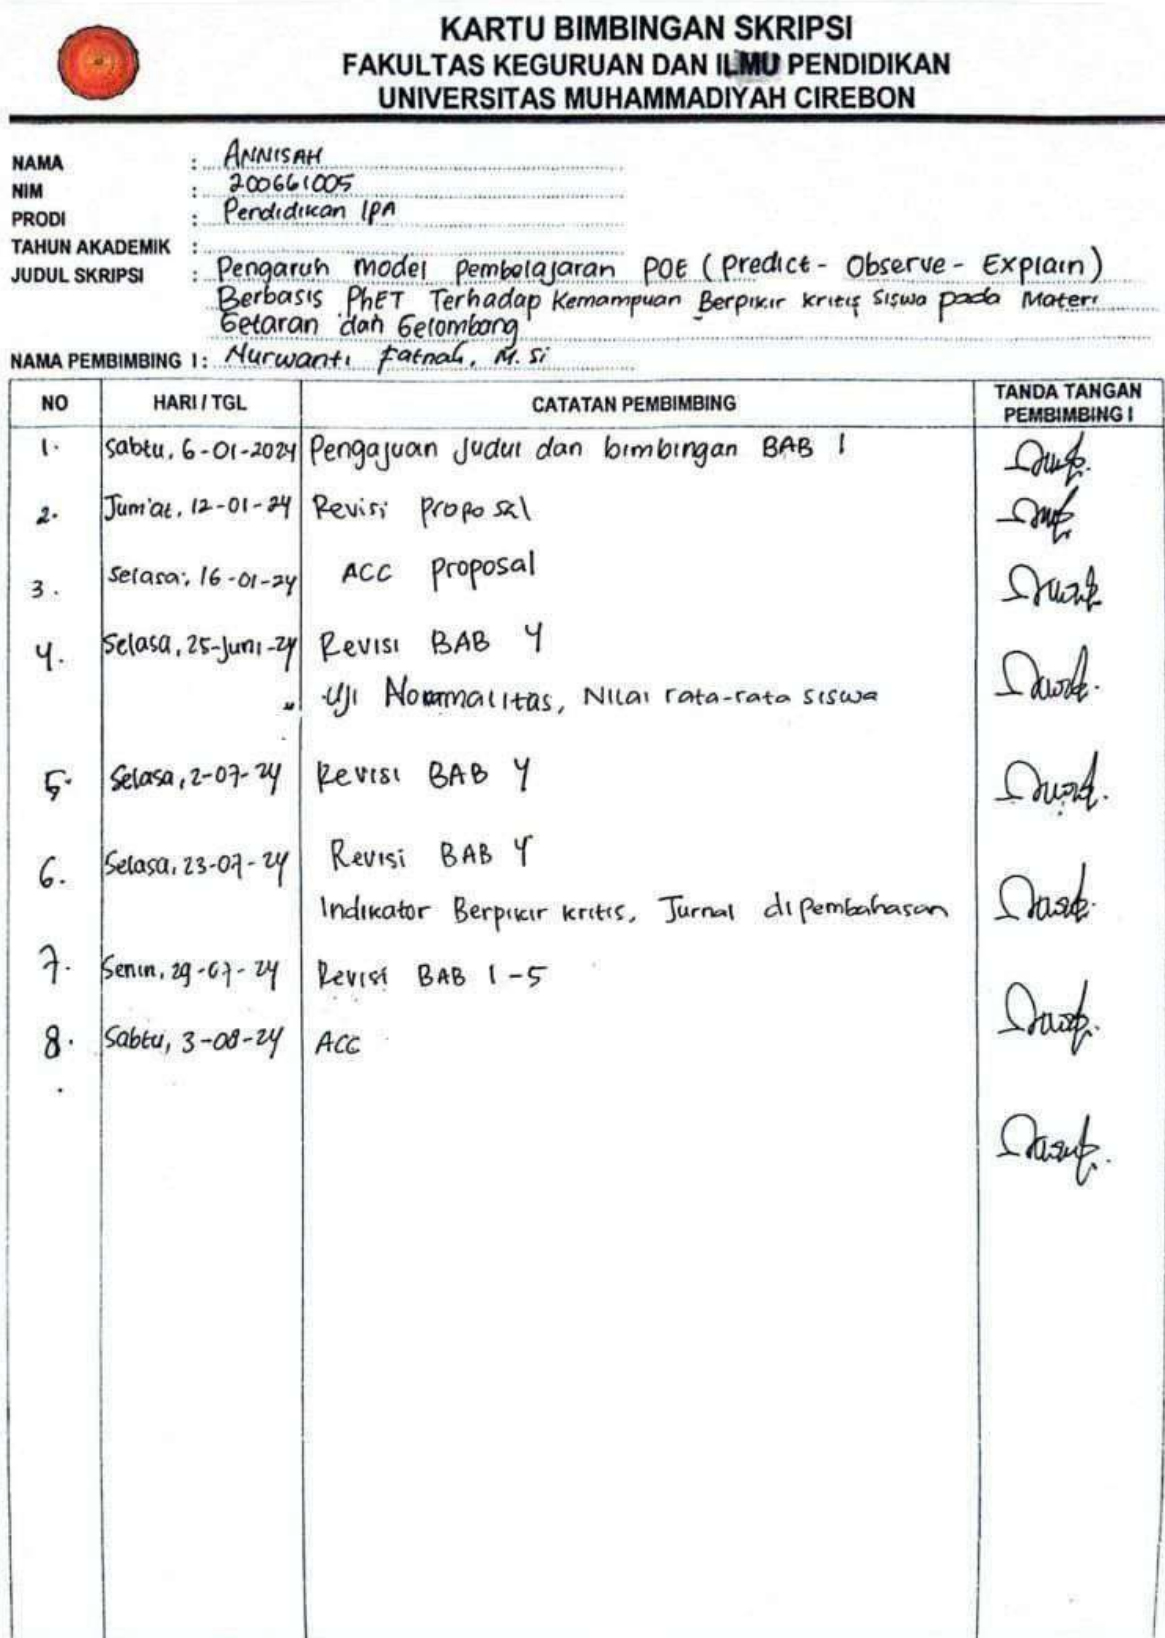 KARTU BIMBINGAN SKRIPSI
FAKULTAS KEGURUAN DAN ILMU PENDIDIKAN
UNIVERSITAS MUHAMMADIYAH CIREBON
NAMA : ANNISAH
NIM : 200661005
PRODI : Pendidikan IPA
TAHUN AKADEMIK :
JUDUL SKRIPSI : Pengaruh model pembelajaran POE (Predict - Observe - Explain)
Berbasis PhET Terhadap Kemampuan Berpikir kritis Siswa pada Materi
Getaran dan Gelombang
NAMA PEMBIMBING I : Nurwanti Fatnah, M. Si
NO HARI / TGL CATATAN PEMBIMBING TANDA TANGAN
PEMBIMBING I
1. Sabtu, 6-01-2024 Pengajuan Judul dan bimbingan BAB 1
2. Jum'at, 12-01-24 Revisi proposal
3. Selasa, 16-01-24 ACC proposal
4. Selasa, 25-Juni-24 Revisi BAB 4
Uji Normalitas, Nilai rata-rata siswa
5. Selasa, 2-07-24 Revisi BAB 4
6. Selasa, 23-07-24 Revisi BAB 4
Indikator Berpikir kritis, Jurnal dipembahasan
7. Senin, 29-07-24 Revisi BAB 1-5
8. Sabtu, 3-08-24 ACC